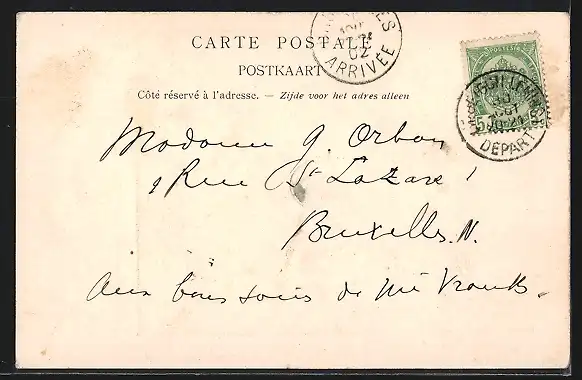 CARTE POSTALE
POSTKAART
Côté réservé à l'adresse. — Zijde voor het adres alleen
ARRIVÉE
02
POSTES
5
AOUT
DEPART
Madame G. Orban
9 Rue St Lazare 1
Bruxelles. N.
Aux bons soins de